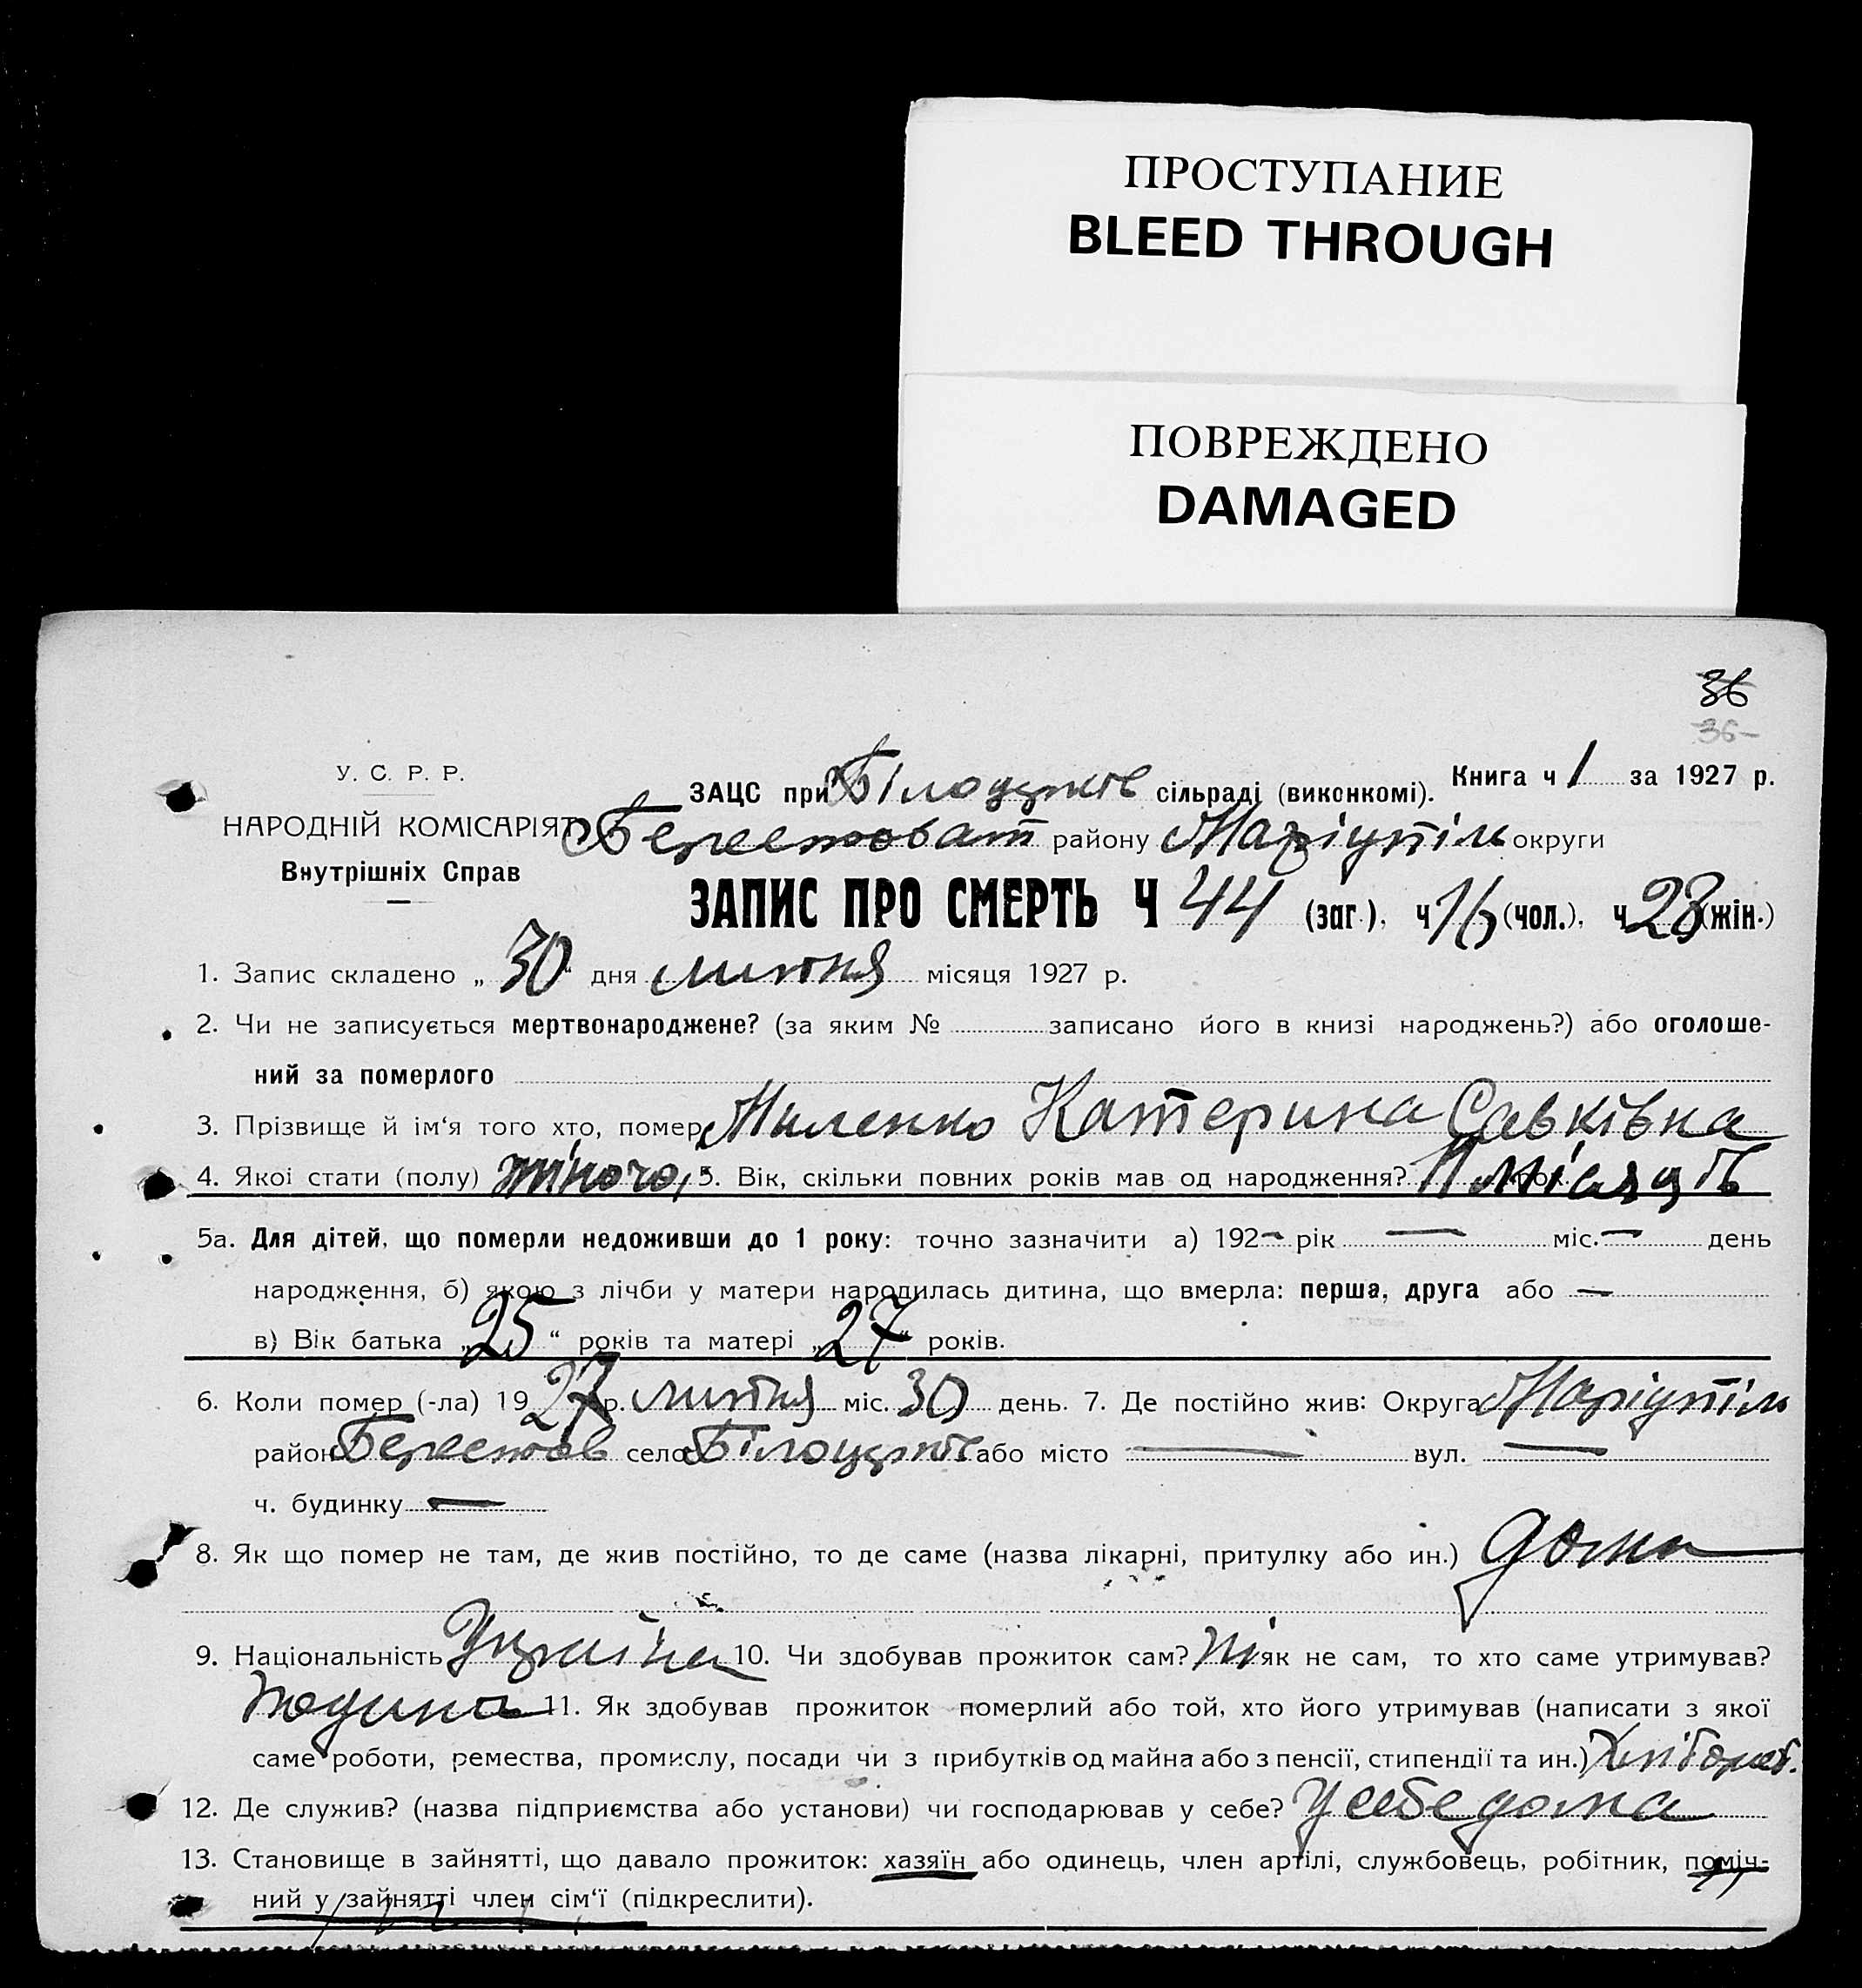 ПРОСТУПАНИЕ
BLEED THROUGH
ПОВРЕЖДЕНО
DAMAGED
36
36-
У. С. Р. Р.
НАРОДНІЙ КОМІСАРІЯТ
Внутрішніх Справ
ЗАЦС при Білоцерків сільраді (виконкомі). Книга ч 1 за 1927 р.
Берестоват району Маріупіль округи
ЗАПИС ПРО СМЕРТЬ Ч 44 (заг.), ч 16 (чол.), ч 28 (жін.)
1. Запис складено „30“ дня липня місяця 1927 р.
2. Чи не записується мертвонароджене? (за яким № записано його в книзі народжень?) або оголоше-
ний за померлого
3. Прізвище й ім‘я того хто, помер Миленко Катерина Савківна
4. Якої стати (полу) жіночо, 5. Вік, скільки повних років мав од народження? 11 місяців
5а. Для дітей, що померли недоживши до 1 року: точно зазначити а) 192– рік — міс. — день
народження, б) якою з лічби у матери народилась дитина, що вмерла: перша, друга або —
в) Вік батька „25“ років та матері „27“ років.
6. Коли помер (-ла) 1927 р. липня міс. 30 день. 7. Де постійно жив: Округа Маріупіль
район Берестов село Білоцерків або місто — вул. —
ч. будинку —
8. Як що помер не там, де жив постійно, то де саме (назва лікарні, притулку або ин.) дома
9. Національність Україна 10. Чи здобував прожиток сам? Ні як не сам, то хто саме утримував?
Родина 11. Як здобував прожиток померлий або той, хто його утримував (написати з якої
саме роботи, ремества, промислу, посади чи з прибутків од майна або з пенсії, стипендії та ин.) Хлібороб.
12. Де служив? (назва підприємства або установи) чи господарював у себе? У себе дома
13. Становище в зайнятті, що давало прожиток: хазяїн або одинець, член артілі, службовець, робітник, поміч-
ний у зайнятті член сім‘ї (підкреслити).